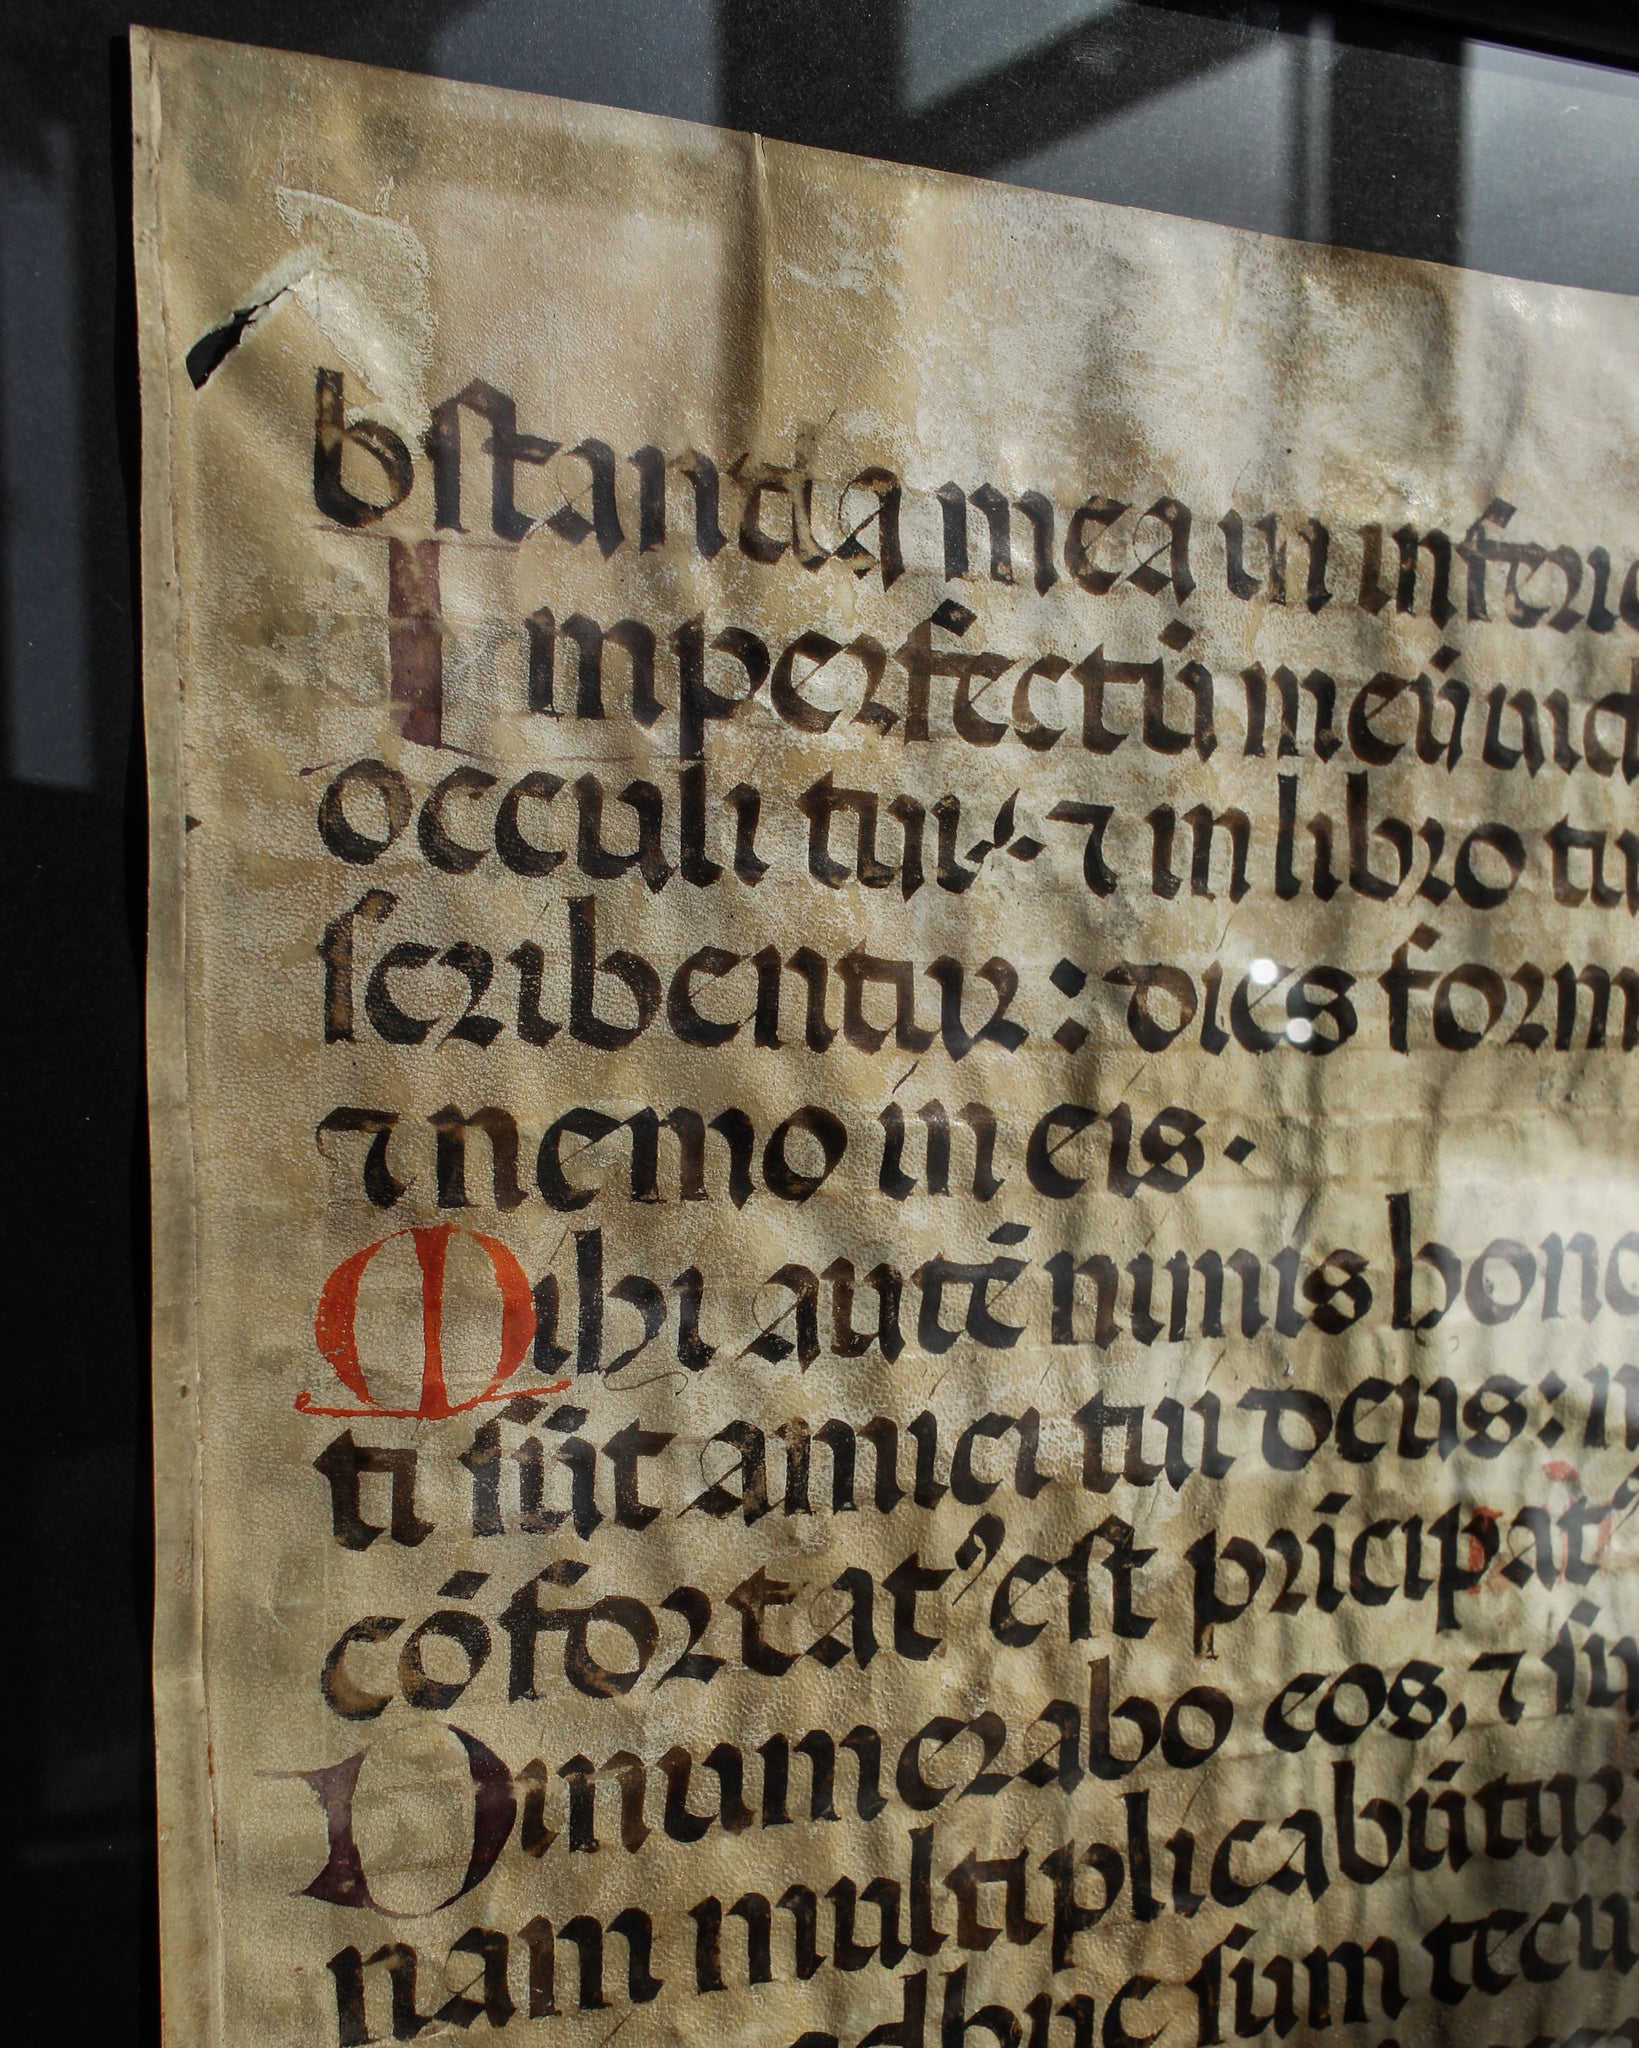 bstancia mea in inferio
Imperfectū meū uid
occuli tui: ⁊ in libro tu
scribentur: dies form
⁊ nemo in eis.
Mihi autē nimis hono
ti sūt amici tui deus: n
cōfortatꝰ est pricipatꝰ
Dinumerabo eos, ⁊ su
nam multiplicabūtur
adhuc sum tecu